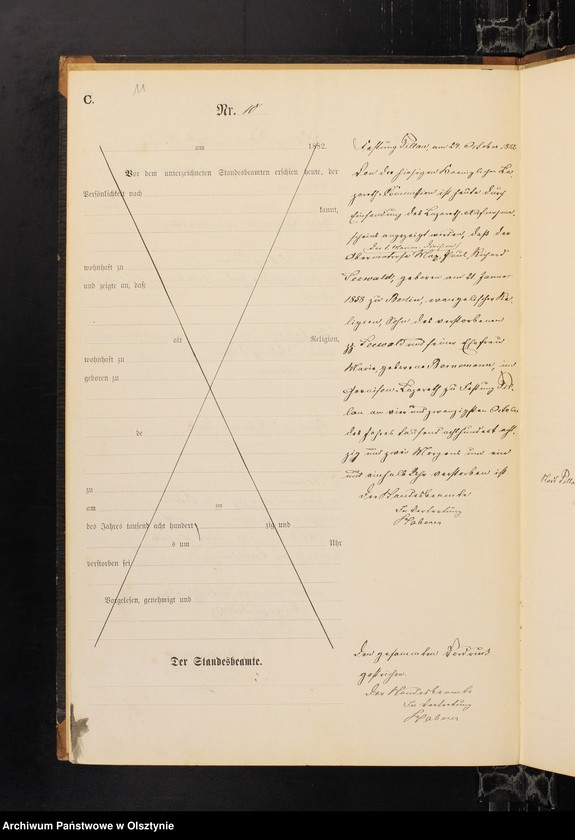 C.
11
Nr. 10
am 1882.
Vor dem unterzeichneten Standesbeamten erschien heute, der
Persönlichkeit nach
kannt,
wohnhaft zu
und zeigte an, daß
alt Religion,
wohnhaft zu
geboren zu
de
zu
am im
des Jahres tausend acht hundert zig und
s um Uhr
verstorben sei
Vorgelesen, genehmigt und
Der Standesbeamte.
Festung Pillau, am 24. October 1882
Von der hiesigen Königlichen La-
zareth Kommission ist heute durch
Einsendung des Lazareth
angezeigt worden, daß der
Obermatrose Max, Paul, Richard
Seewald, geboren am 21 Januar
1858 zu Berlin, evangelischer Re-
ligion, Sohn des verstorbenen
Seewald und seiner Ehefrau
Marie, geborene Bornemann, im
Garnison-Lazareth zu Festung Pil-
lau am vierundzwanzigsten October
des Jahres tausend achthundert acht-
zig und zwei Morgens um ein
und einhalb Uhr verstorben ist
Der Standesbeamte
In Vertretung
Haberer
Den gesammten Vordruck
gestrichen
Der Standesbeamte
In Vertretung
Haberer
Archiwum Państwowe w Olsztynie